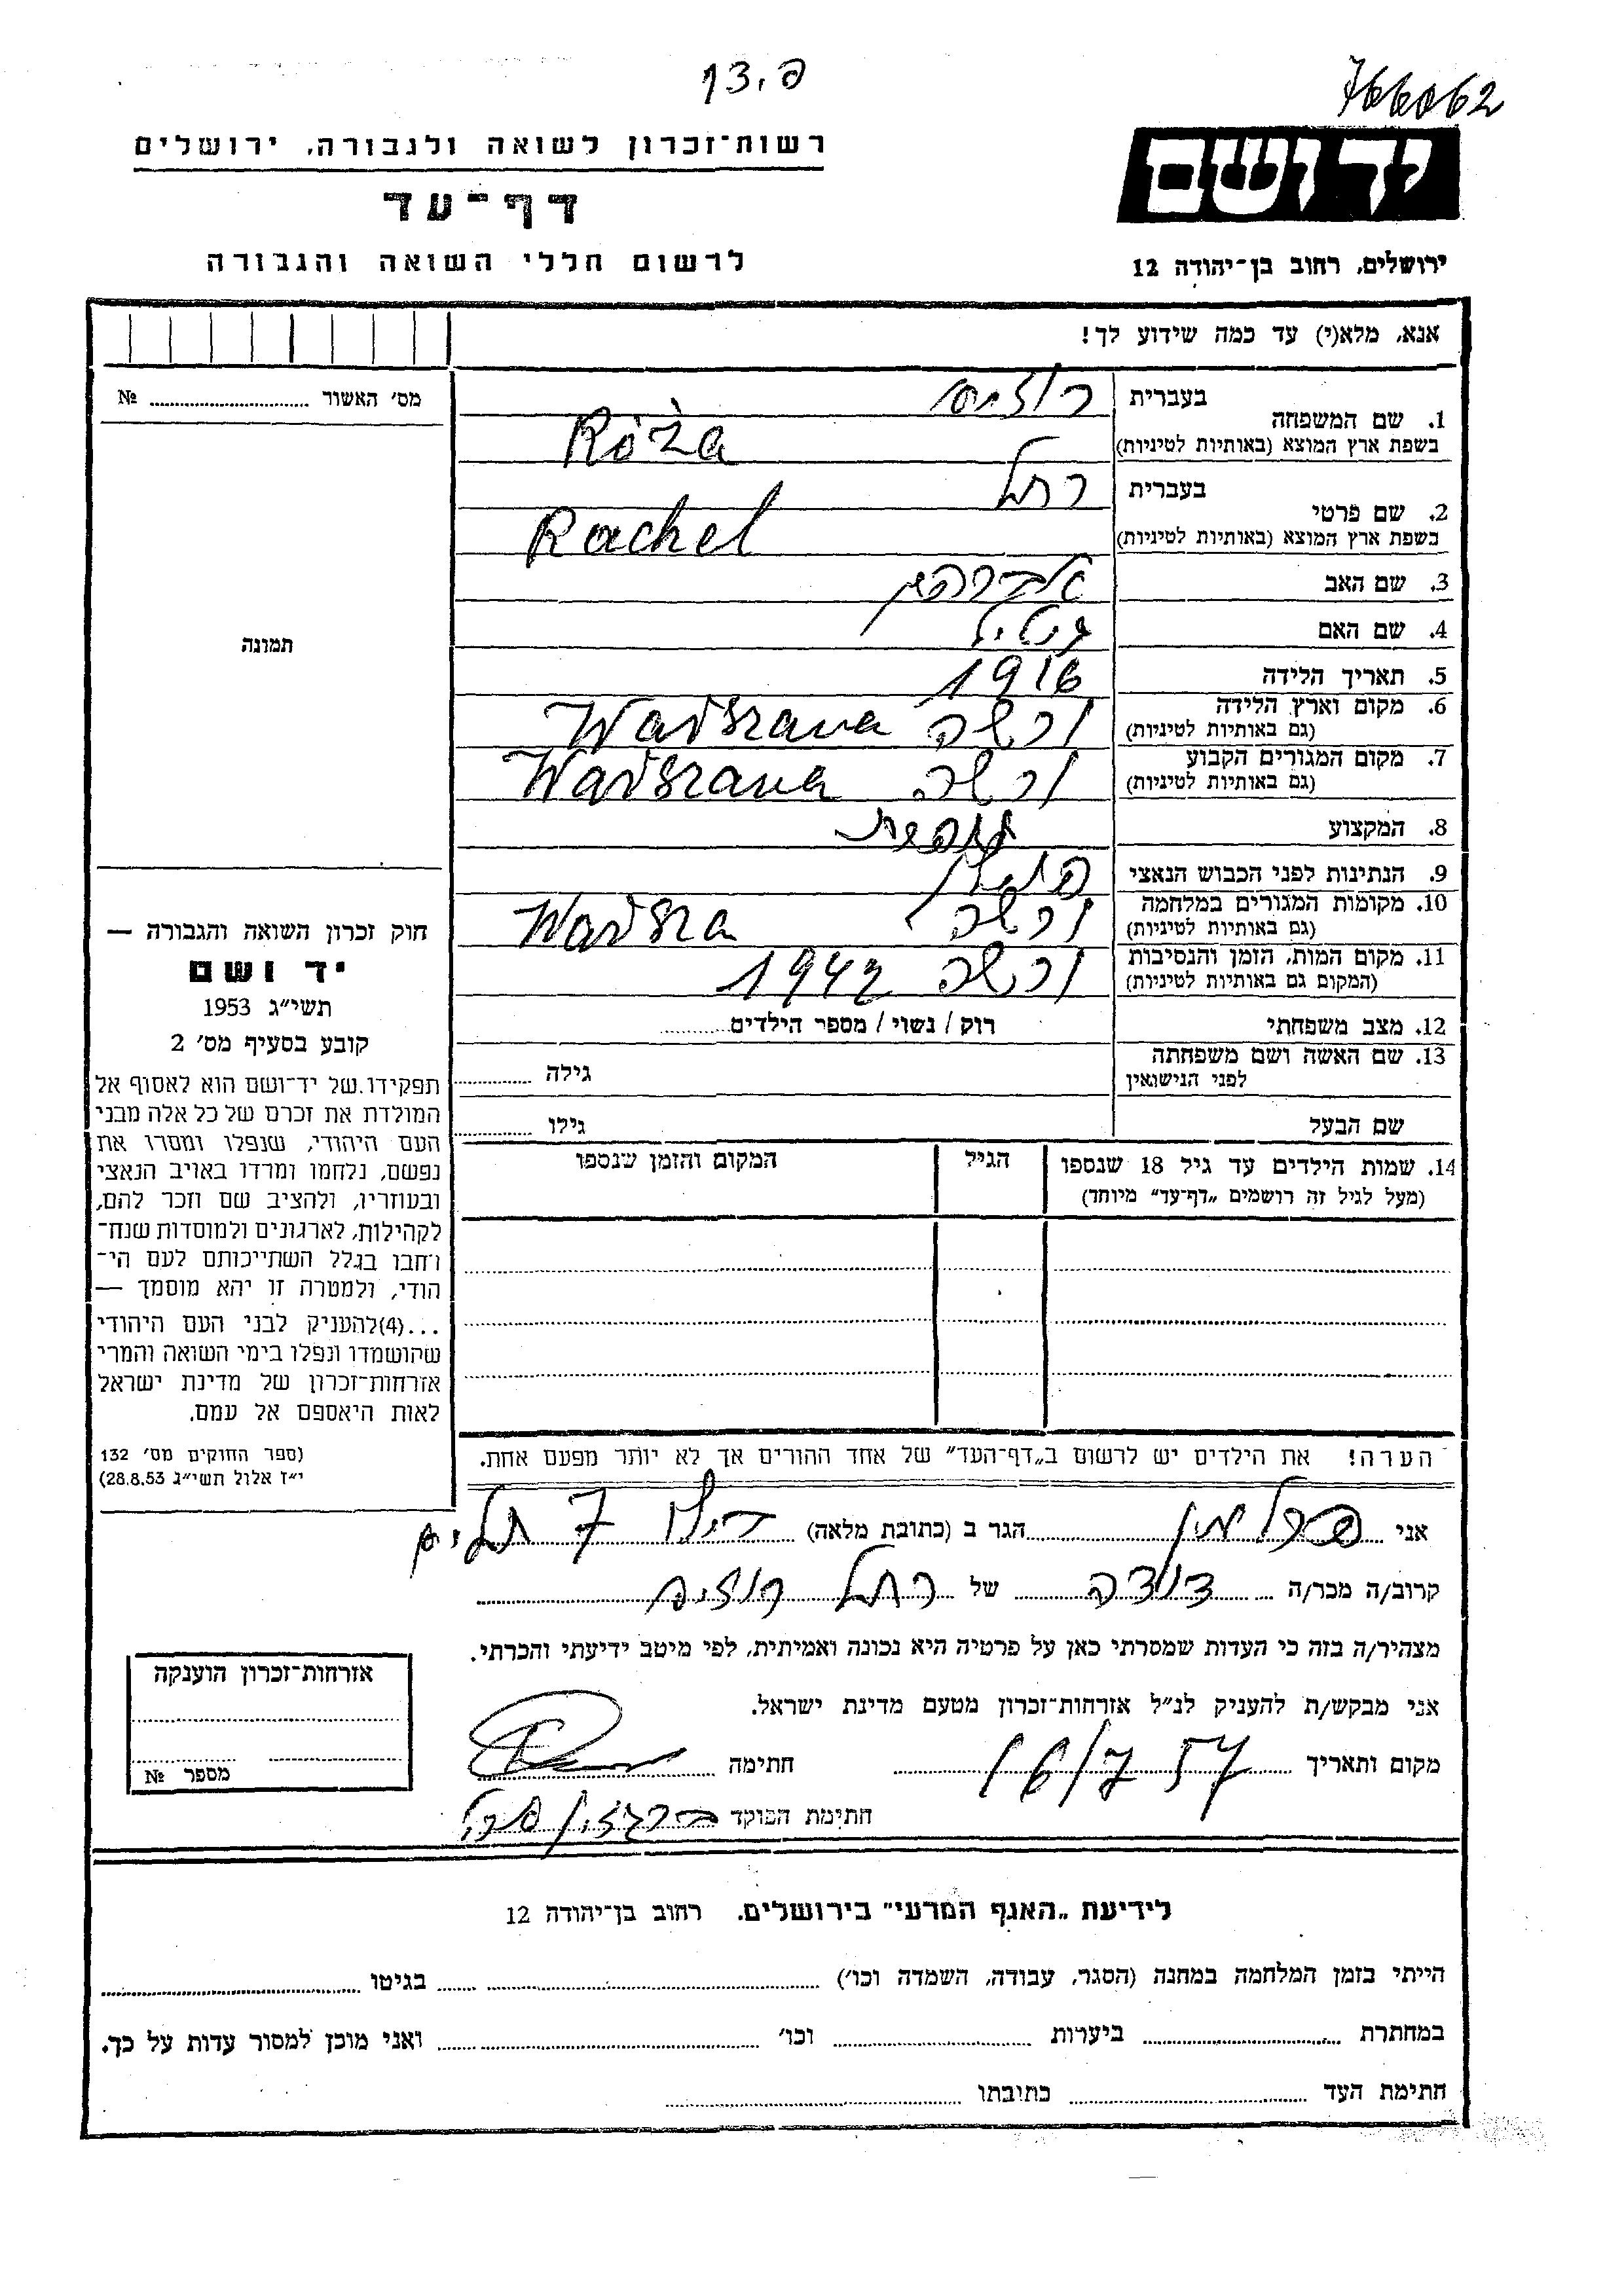 766062
פ. 23ן
יד ושם
ירושלים, רחוב בן־יהודה 12
רשות־זכרון לשואה ולגבורה, ירושלים
דף־עד
לרשום חללי השואה והגבורה
אנא, מלא(י) עד כמה שידוע לך!
מס׳ האשור № 
1. שם המשפחה בעברית
בשפת ארץ המוצא (באותיות לטיניות) Róża
2. שם פרטי בעברית רחל
בשפת ארץ המוצא (באותיות לטיניות) Rachel
3. שם האב אברהם
4. שם האם
5. תאריך הלידה 1916
6. מקום וארץ הלידה (גם באותיות לטיניות) ורשה Warszawa
7. מקום המגורים הקבוע (גם באותיות לטיניות) ורשה Warszawa
8. המקצוע
9. הנתינות לפני הכבוש הנאצי פולין
10. מקומות המגורים במלחמה (גם באותיות לטיניות) ורשה Warsza
11. מקום המות, הזמן והנסיבות (המקום גם באותיות לטיניות) ורשה 1942
12. מצב משפחתי רוק / נשוי / מספר הילדים
13. שם האשה ושם משפחתה לפני הנישואין גילה
שם הבעל גילו
14. שמות הילדים עד גיל 18 שנספו הגיל המקום והזמן שנספו
(מעל לגיל זה רושמים „דף־עד״ מיוחד)
הערה! את הילדים יש לרשום ב„דף־העד״ של אחד ההורים אך לא יותר מפעם אחת.
תמונה
חוק זכרון השואה והגבורה —
יד ושם
תשי״ג 1953
קובע בסעיף מס׳ 2
תפקידו של יד־ושם הוא לאסוף אל
המולדת את זכרם של כל אלה מבני
העם היהודי, שנפלו ומסרו את
נפשם, נלחמו ומרדו באויב הנאצי
ובעוזריו, ולהציב שם וזכר להם,
לקהילות, לארגונים ולמוסדות שנח־
רחבו בגלל השתייכותם לעם הי־
הודי, ולמטרה זו יהא מוסמך —
...(4)להעניק לבני העם היהודי
שהושמדו ונפלו בימי השואה והמרי
אזרחות־זכרון של מדינת ישראל
לאות היאספם אל עמם.
(ספר החוקים מס׳ 132
י״ז אלול תשי״ג 28.8.53)
אני פרלמן הגר ב (כתובת מלאה) 7
קרוב/ה מכר/ה דודה של רחל
מצהיר/ה בזה כי העדות שמסרתי כאן על פרטיה היא נכונה ואמיתית, לפי מיטב ידיעתי והכרתי.
אני מבקש/ת להעניק לנ״ל אזרחות־זכרון מטעם מדינת ישראל.
מקום ותאריך 16/7 57 חתימה
חתימת הפוקד
אזרחות־זכרון הוענקה
מספר №
לידיעת „האגף המדעי״ בירושלים. רחוב בן־יהודה 12
הייתי בזמן המלחמה במחנה (הסגר, עבודה, השמדה וכו׳) בגיטו
במחתרת ביערות וכו׳ ואני מוכן למסור עדות על כך.
חתימת העד כתובתו